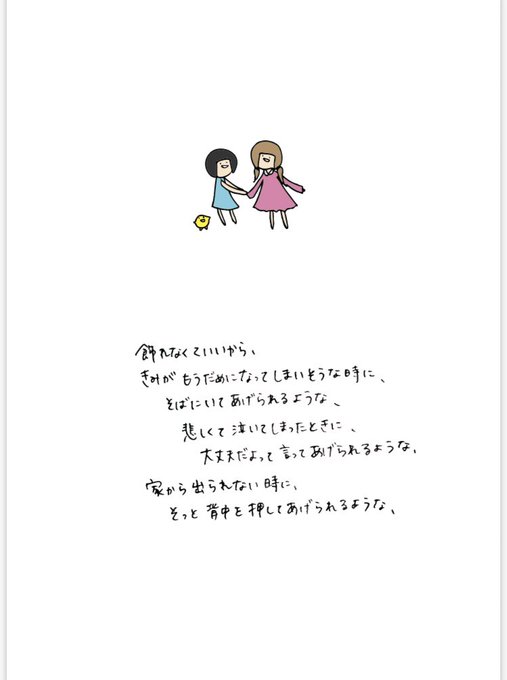 飾れなくていいから、
きみがもうだめになってしまいそうな時に、
そばにいてあげられるような、
悲しくて泣いてしまったときに、
大丈夫だよって言ってあげられるような、
家から出られない時に、
そっと背中を押してあげられるような、